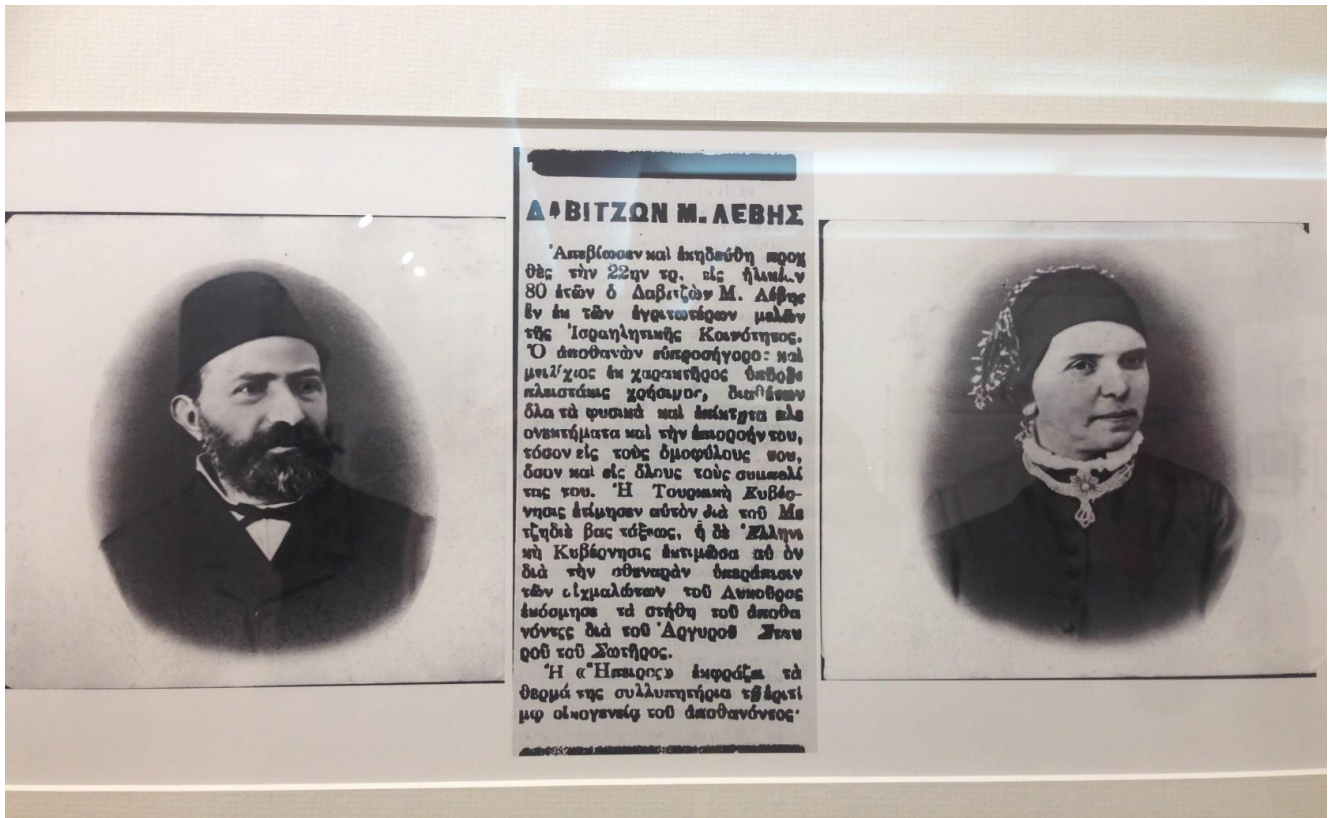 ΔΑΒΙΤΖΩΝ Μ. ΛΕΒΗΣ
Ἀπεβίωσεν καὶ ἐκηδεύθη προχ
θὲς τὴν 22ην τρ. εἰς ἡλικίαν
80 ἐτῶν ὁ Δαβιτζὼν Μ. Λέβης
ἓν ἐκ τῶν ἐγκριτωτέρων μελῶν
τῆς Ἰσραηλητικῆς Κοινότητος.
Ὁ ἀποθανὼν εὐπροσήγορος καὶ
μειλίχιος ἐκ χαρακτῆρος
πλειστάκις χρήσιμος, διαθέσων
ὅλα τὰ φυσικὰ καὶ ἐπίκτητα πλε
ονεκτήματα καὶ τὴν ἐπιρροήν του,
τόσον εἰς τοὺς ὁμοφύλους του,
ὅσον καὶ εἰς ὅλους τοὺς συμπολί
τας του. Ἡ Τουρκικὴ Κυβέρ-
νησις ἐτίμησεν αὐτὸν διὰ τοῦ Με
τζηδιὲ βας τάξεως, ἡ δὲ Ἑλληνι
κὴ Κυβέρνησις ἐκτιμῶσα
διὰ τὴν σθεναρὰν ὑπεράπισιν
τῶν αἰχμαλώτων τοῦ Δυκοβρος
ἐκόσμησε τὰ στήθη τοῦ ἀποθα
νόντος διὰ τοῦ Ἀργυροῦ Σταυ
ροῦ τοῦ Σωτῆρος.
Ἡ «Ἤπειρος» ἐκφράζει τὰ
θερμά της συλλυπητήρια τῇ ἐριτί
μῳ οἰκογενείᾳ τοῦ ἀποθανόντος.